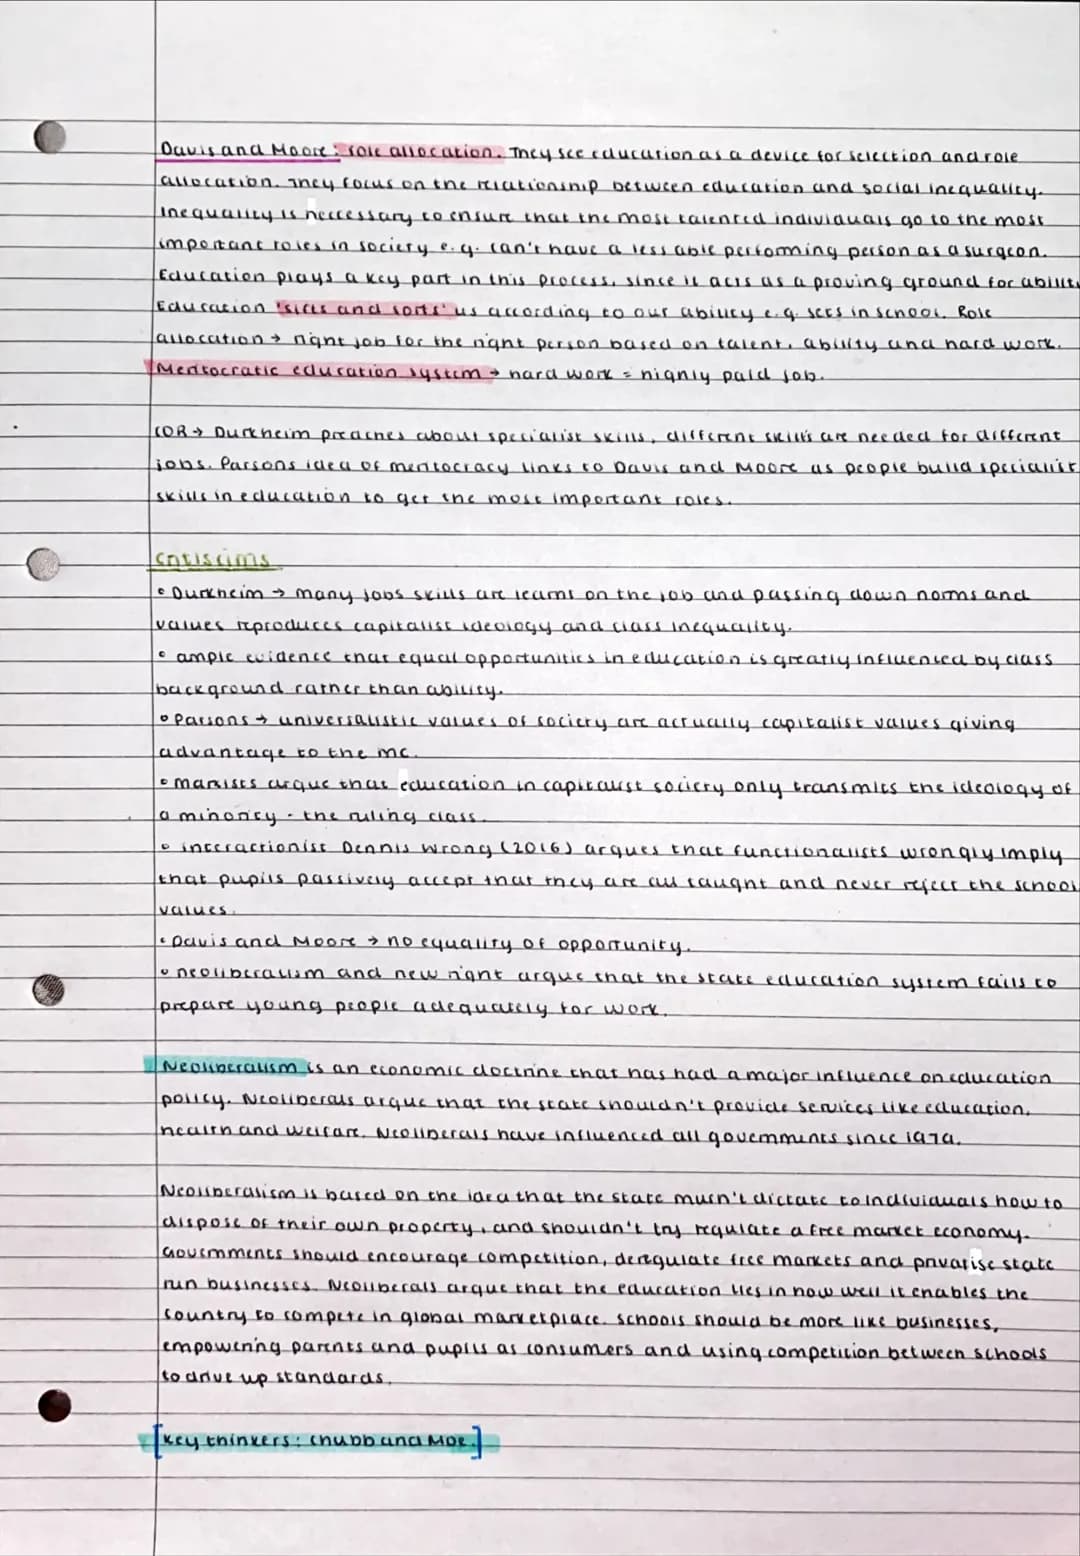 Davis and Moore: role allocation. They see education as a device for selection and role
allocation. They focus on the relationship between education and social inequality.
Inequality is neccessary to ensure that the most talented individuals go to the most
important roles in society e.g. can't have a less able performing person as a surgeon.
Education plays a key part in this process, since it acts as a proving ground for ability
Education 'sifts and sorts' us according to our ability e.g. sets in school. Role
allocation → right job for the right person based on talent, ability and hard work.
Meritocratic education system → hard work = highly paid job.
COR → Durkheim preaches about specialist skills, different skills are needed for different
jobs. Parsons idea of meritocracy links to Davis and Moore as people build specialist
skills in education to get the most important roles.
Critiscims
• Durkheim → many jobs skills are learnt on the job and passing down norms and
values reproduces capitalist ideology and class inequality.
• ample evidence that equal opportunities in education is greatly influenced by class
background rather than ability.
• Parsons → universalistic values of society are actually capitalist values giving
advantage to the mc.
• marxists argue that education in capitalist society only transmits the ideology of
a minority - the ruling class.
• interactionist Dennis Wrong (2016) argues that functionalists wrongly imply
that pupils passively accept that they are all taught and never reject the school
values.
• Davis and Moore → no equality of opportunity.
• neoliberalism and new right argue that the state education system fails to
prepare young people adequately for work.
Neoliberalism is an economic doctrine that has had a major influence on education
policy. Neoliberals argue that the state shouldn't provide services like education,
health and welfare. Neoliberals have influenced all governments since 1979.
Neoliberalism is based on the idea that the state musn't dictate to individuals how to
dispose of their own property, and shouldn't try regulate a free market economy.
Governments should encourage competition, deregulate free markets and privatise state
run businesses. Neoliberals argue that the education lies in how well it enables the
country to compete in global marketplace. schools should be more like businesses,
empowering parents and pupils as consumers and using competition between schools
to drive up standards.
[Key thinkers: Chubb and Moe.]